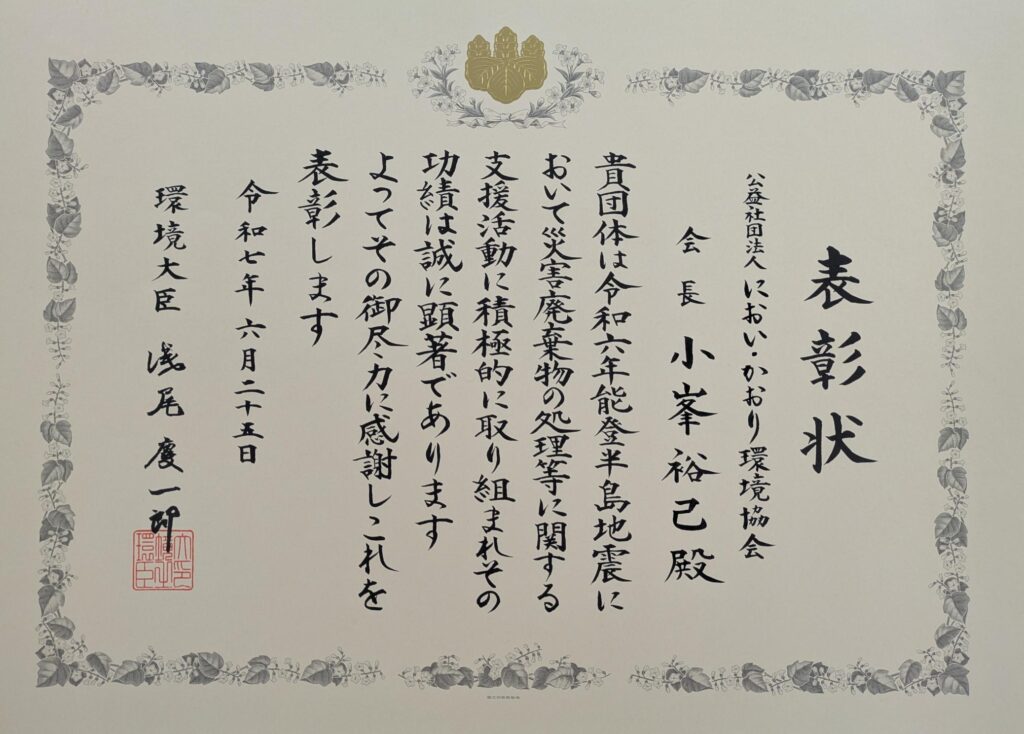 表彰状
公益社団法人 におい・かおり環境協会
会長 小峯裕己殿
貴団体は令和六年能登半島地震に
おいて災害廃棄物の処理等に関する
支援活動に積極的に取り組まれその
功績は誠に顕著であります
よってその御尽力に感謝しこれを
表彰します
令和七年六月二十五日
環境大臣 浅尾慶一郎